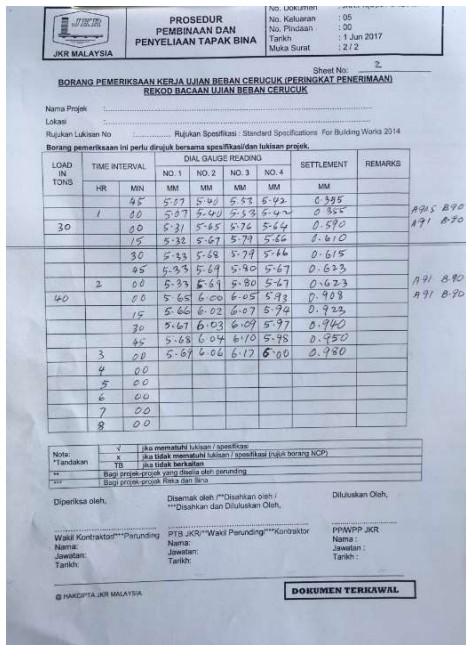 JKR
JKR MALAYSIA
PROSEDUR
PEMBINAAN DAN
PENYELIAAN TAPAK BINA
No. Dokumen
No. Keluaran : 05
No. Pindaan : 00
Tarikh : 1 Jun 2017
Muka Surat : 2 / 2
Sheet No: 2
BORANG PEMERIKSAAN KERJA UJIAN BEBAN CERUCUK (PERINGKAT PENERIMAAN)
REKOD BACAAN UJIAN BEBAN CERUCUK
Nama Projek :
Lokasi :
Rujukan Lukisan No : Rujukan Spesifikasi : Standard Specifications For Building Works 2014
Borang pemeriksaan ini perlu dirujuk bersama spesifikasi/dan lukisan projek.
LOAD IN TONS TIME INTERVAL DIAL GAUGE READING SETTLEMENT REMARKS
NO. 1 NO. 2 NO. 3 NO. 4
HR MIN MM MM MM MM MM
45 5.07 5.40 5.53 5.42 0.355
1 00 5.07 5.40 5.53 5.42 0.355 A 90.5 B.90
30 00 5.31 5.65 5.76 5.64 0.590 A 91 B.90
15 5.32 5.67 5.79 5.66 0.610
30 5.33 5.68 5.79 5.66 0.615
45 5.33 5.69 5.80 5.67 0.623
2 00 5.33 5.69 5.80 5.67 0.623 A 91 B.90
40 00 5.65 6.00 6.05 5.93 0.908 A 91 B.90
15 5.66 6.02 6.07 5.94 0.923
30 5.67 6.03 6.09 5.97 0.940
45 5.68 6.04 6.10 5.98 0.950
3 00 5.69 6.06 6.17 6.00 0.980
4 00
5 00
6 00
7 00
8 00
Nota:
*Tandakan
√ jika mematuhi lukisan / spesifikasi
x jika tidak mematuhi lukisan / spesifikasi (rujuk borang NCP)
TB jika tidak berkaitan
** Bagi projek-projek yang diselia oleh perunding
*** Bagi projek-projek Reka dan Bina
Diperiksa oleh,
Wakil Kontraktor/***Perunding
Nama:
Jawatan:
Tarikh:
Disemak oleh /**Disahkan oleh /
***Disahkan dan Diluluskan Oleh,
PTB JKR/**Wakil Perunding/***Kontraktor
Nama:
Jawatan:
Tarikh:
Diluluskan Oleh,
PP/WPP JKR
Nama :
Jawatan :
Tarikh :
@ HAKCIPTA JKR MALAYSIA
DOKUMEN TERKAWAL